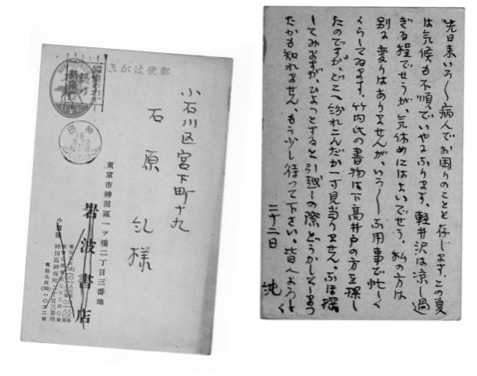 郵便はがき
小石川区宮下町十九
石原
様
東京市神田區一ツ橋二丁目三番地
岩波書店
先日来いろ〱病んでお困りのことと存じます。この夏
は気候も不順でいやなふります。軽井沢は涼し過
ぎる程でせうが、気休めにはよいでせう。私の方は
別に変りはありませんが、いろ〱な用事で忙しく
くらしてゐます。竹内氏の書物は下高井戸の方を探し
たのですが、どこへ紛れこんだか一寸見当りません。なほ探
してみますが、ひょっとすると引越しの際どうかしてしまつ
たかも知れません。もう少し待って下さい。皆々よろしく
二十二日 純